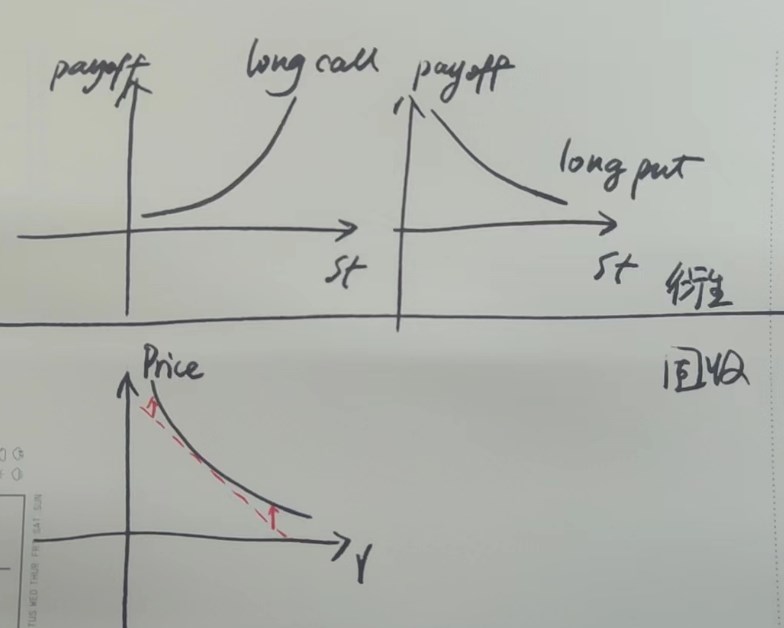 payoff
long call
payoff
long put
St
St
衍生
Price
固收
r
TUS WED THUR FRI SAT SUN